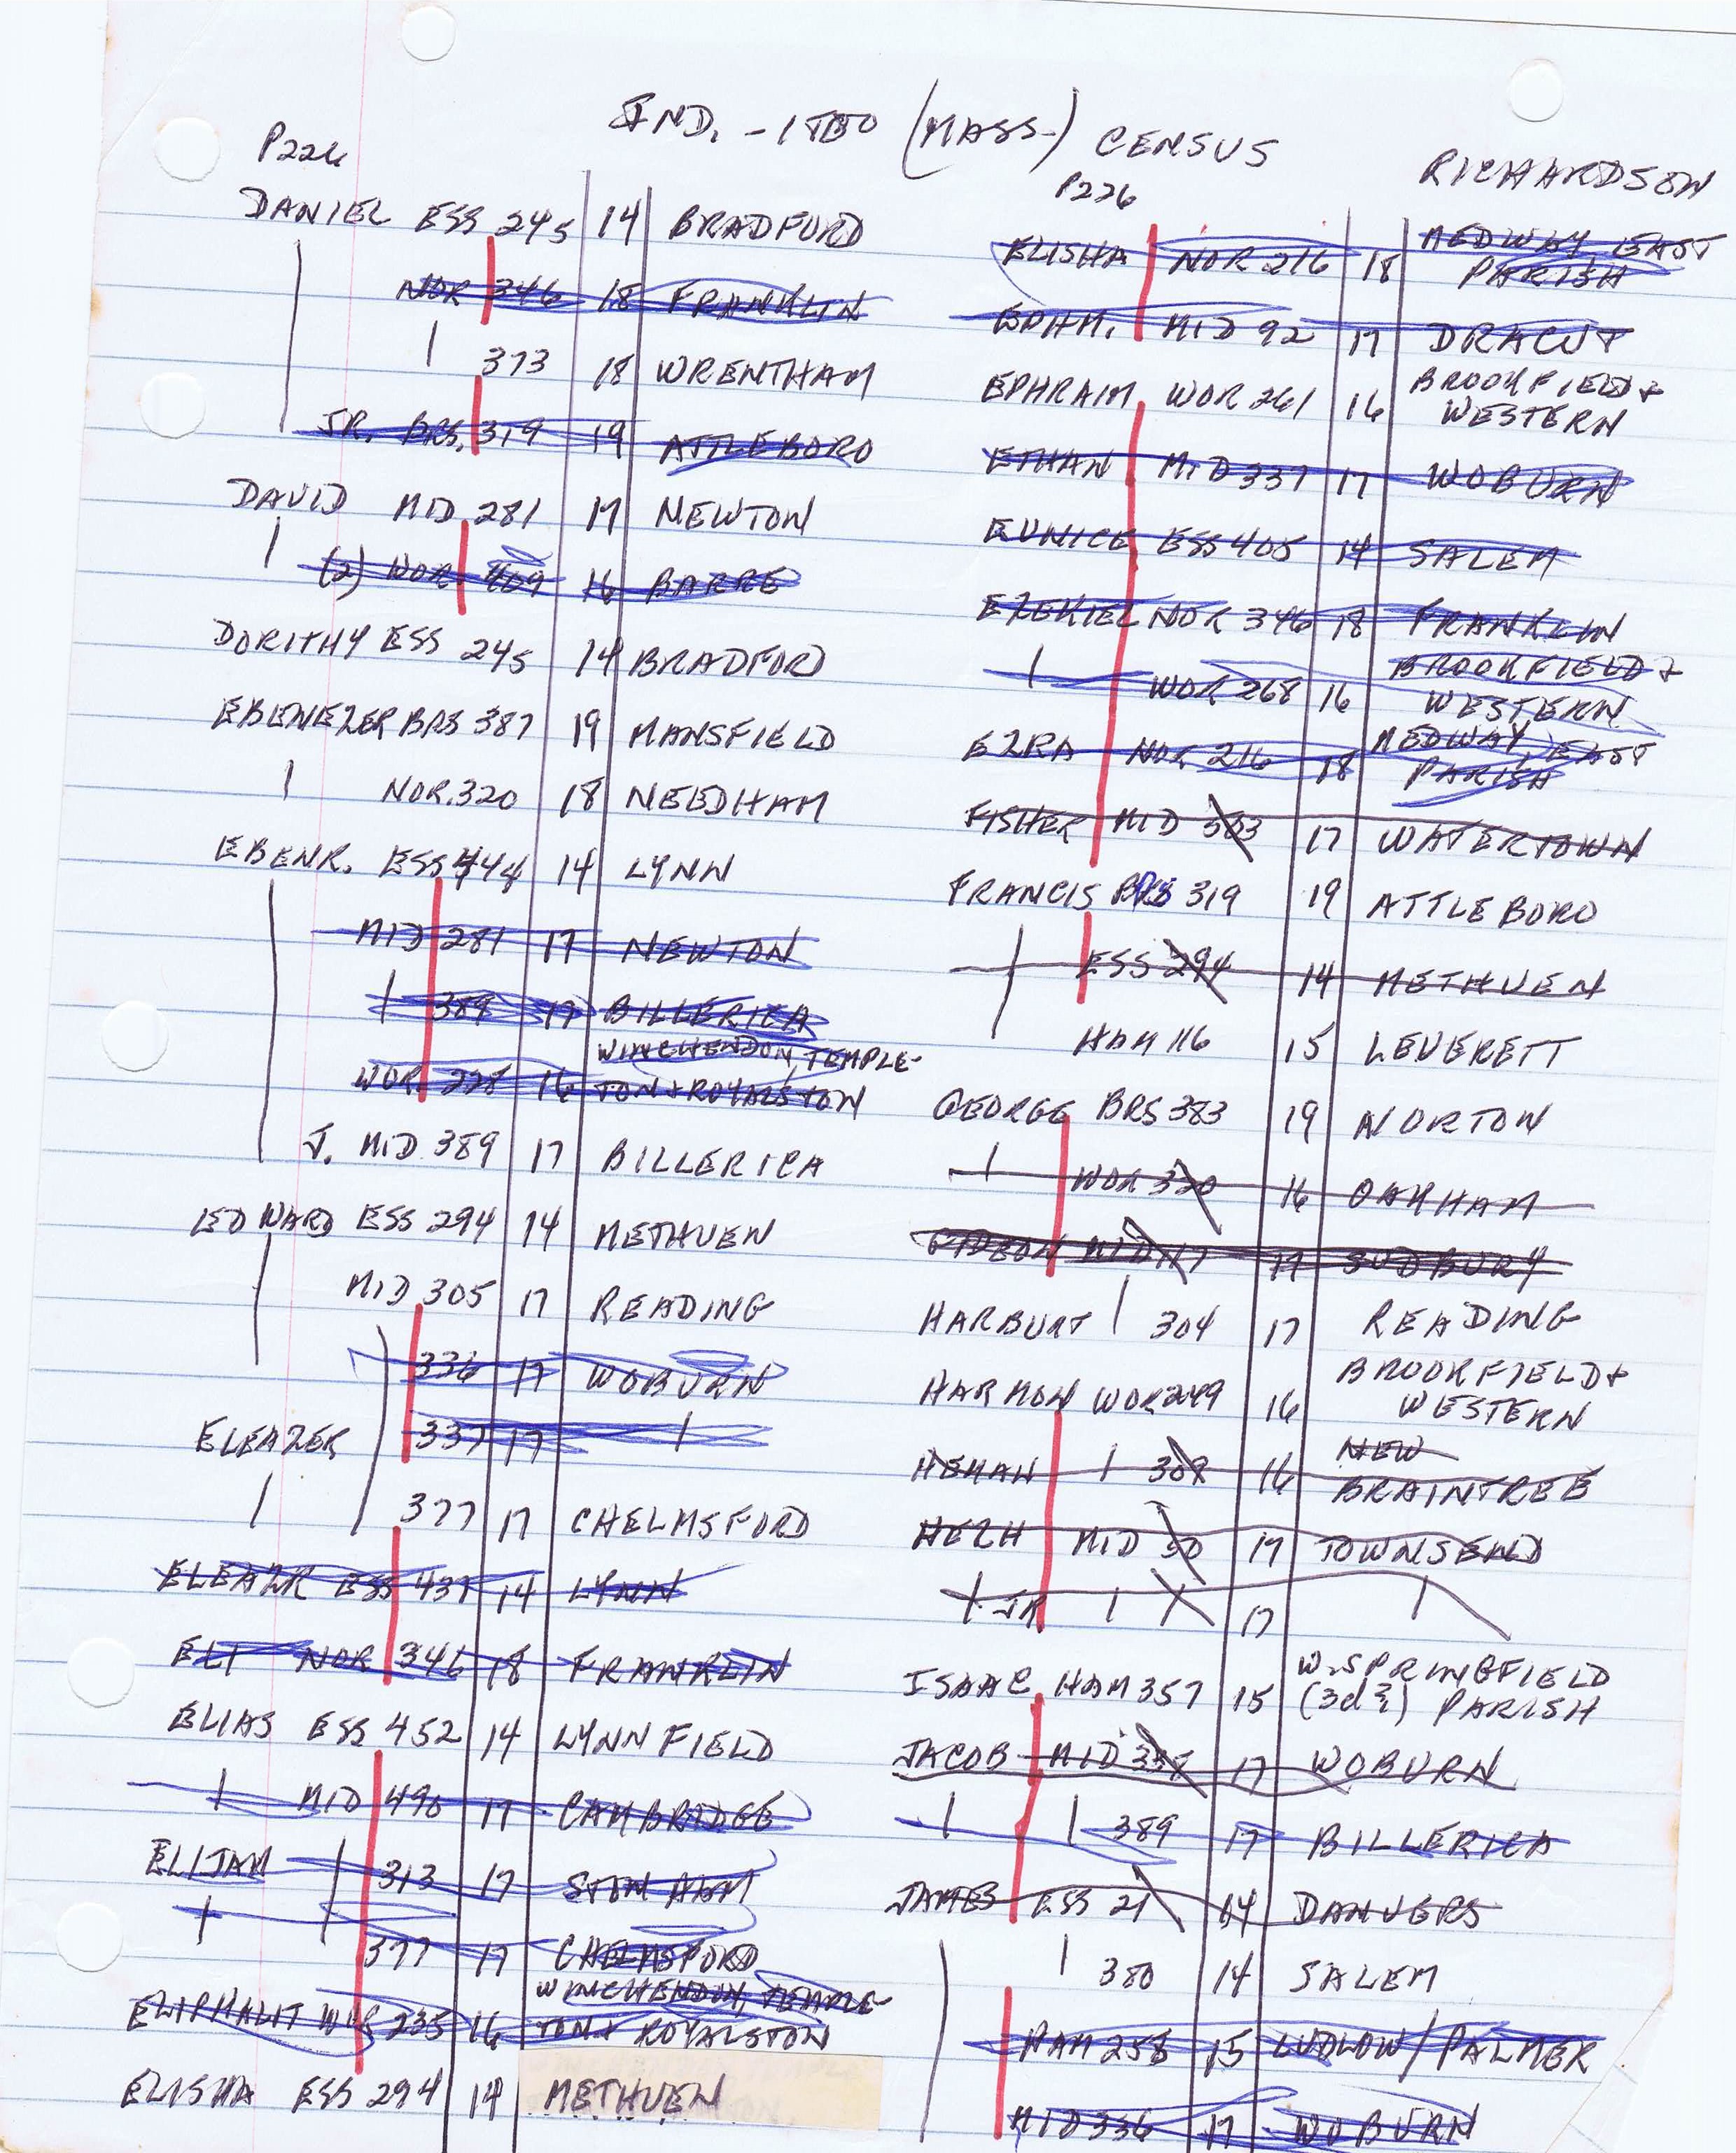 IND. - 1800 (MASS.) CENSUS RICHARDSON
P226
DANIEL ESS 245 14 BRADFORD
NOR 346 18 FRANKLIN
373 18 WRENTHAM
JR. BRS. 319 19 ATTLEBORO
DAVID MID 281 17 NEWTON
(2) WOR. 409 16 BARRE
DORITHY ESS 245 14 BRADFORD
EBENEZER BRS 387 19 MANSFIELD
NOR. 320 18 NEEDHAM
EBENR. ESS 444 14 LYNN
MID 281 17 NEWTON
389 17 BILLERICA
WINCHENDON, TEMPLE-
WOR. 228 16 TON & ROYALSTON
J. MID 389 17 BILLERICA
EDWARD ESS 294 14 METHUEN
MID 305 17 READING
336 17 WOBURN
ELEAZER 337 17
377 17 CHELMSFORD
ELEAZR ESS 437 14 LYNN
ELI NOR 346 18 FRANKLIN
ELIAS ESS 452 14 LYNNFIELD
MID 490 17 CAMBRIDGE
ELIJAH 313 17
377 17 CHELMSFORD
WINCHENDON, TEMPLE-
ELIPHALIT WOR 235 16 TON & ROYALSTON
ELISHA ESS 294 14 METHUEN
P226
ELISHA NOR 216 18 MEDWAY, EAST
PARISH
EPHM. MID 92 17 DRACUT
EPHRAIM WOR 261 16 BROOKFIELD &
WESTERN
ETHAN MID 337 17 WOBURN
EUNICE ESS 405 14 SALEM
EZEKIEL NOR 346 18 FRANKLIN
WOR 268 16 BROOKFIELD &
WESTERN
EZRA NOR 216 18 MEDWAY, EAST
PARISH
FISHER MID 503 17 WATERTOWN
FRANCIS BRS 319 19 ATTLEBORO
ESS 294 14 METHUEN
HAM 116 15 LEVERETT
GEORGE BRS 383 19 NORTON
WOR 320 16 OAKHAM
GIDEON MID 117 17 SUDBURY
HARBURT 304 17 READING
HARMON WOR 249 16 BROOKFIELD &
WESTERN
HEMAN 308 16 NEW
BRAINTREE
HEZH MID 50 17 TOWNSEND
JR 17
ISAAC HAM 357 15 W. SPRINGFIELD
(3d) PARISH
JACOB MID 337 17 WOBURN
389 17 BILLERICA
JAMES ESS 21 14 DANVERS
380 14 SALEM
HAM 258 15 LUDLOW/PALMER
MID 336 17 WOBURN